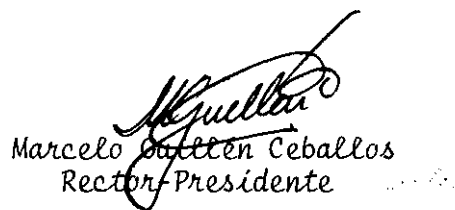 MGuillén
Marcelo Guillén Ceballos
Rector-Presidente